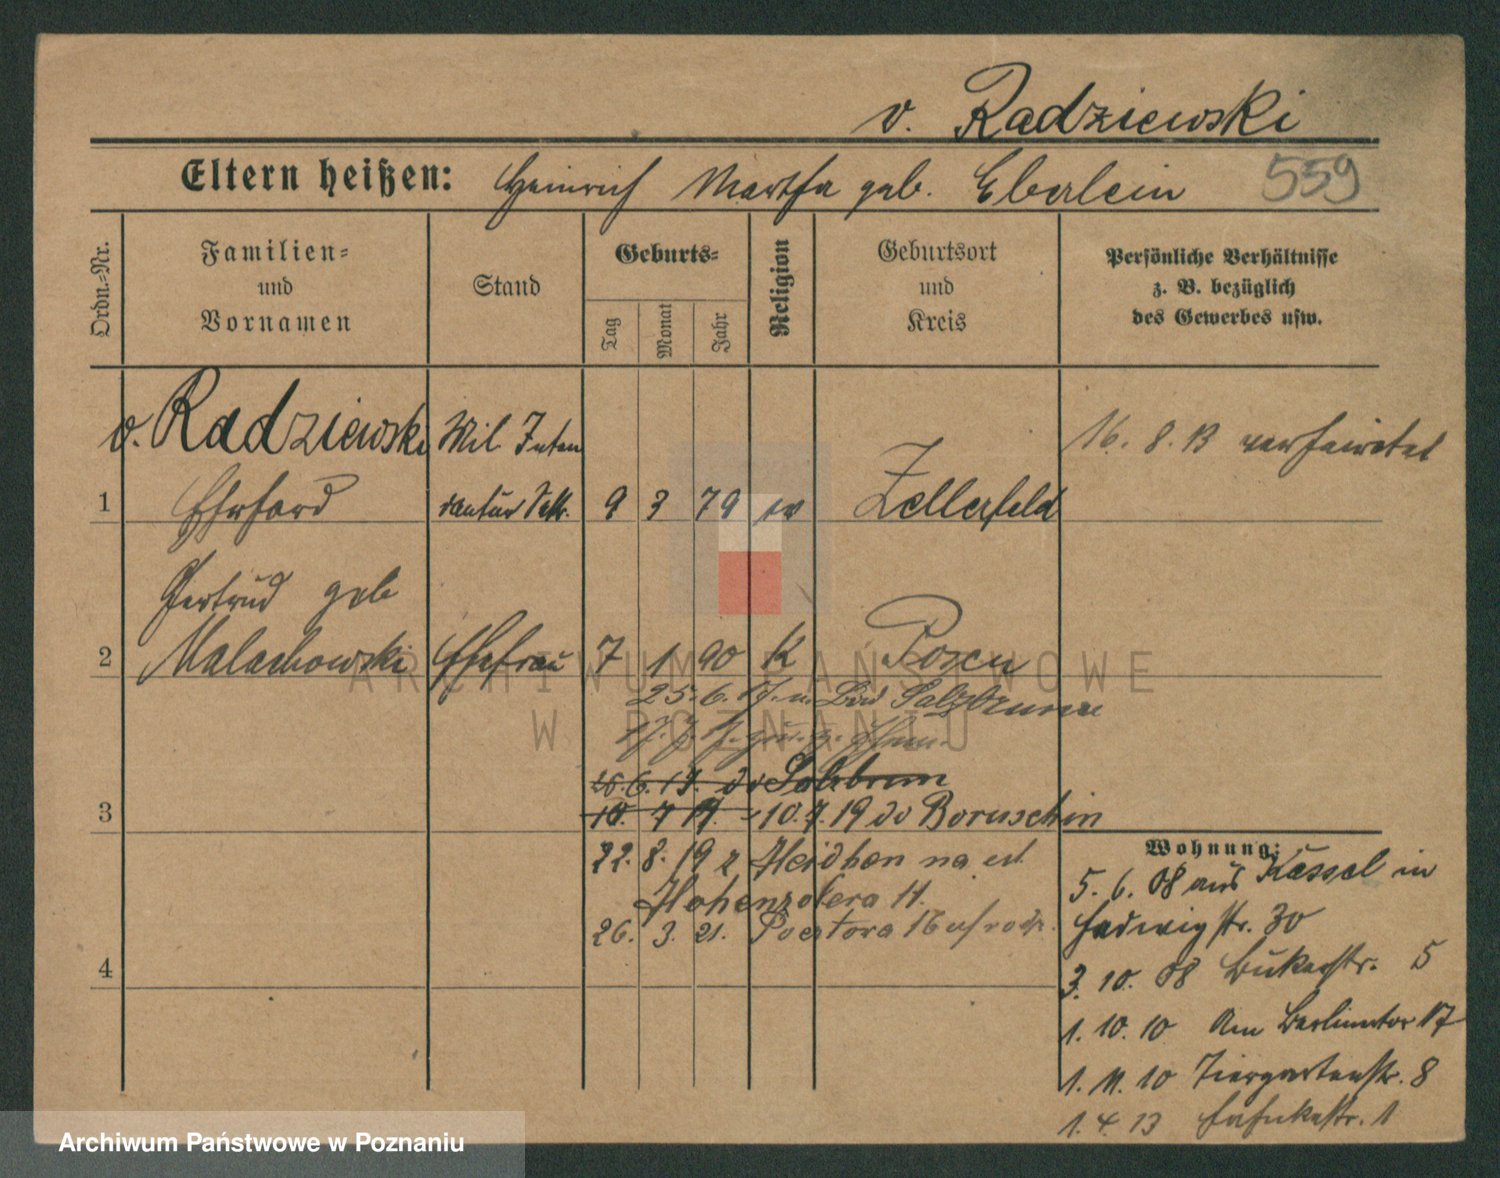 v. Radziewski
Eltern heißen: Heinrich Martha geb. Eberlein 559
Ordn.=Nr.
Familien=
und
Vornamen
Stand
Geburts=
Tag
Monat
Jahr
Religion
Geburtsort
und
Kreis
Persönliche Verhältnisse
z. B. bezüglich
des Gewerbes usw.
v. Radziewski Mil. Inten
16. 8. 13 verheiratet
1 Ehrhard dantur Sekr. 9 3 79 ev Zellerfeld
Gertrud geb
2 Malachowski Ehefrau 7 1 90 K Posen
25. 6. 17. n. Bad Salzbrunn
26. 6. 17. Salzbrunn
3 10. 7 17. 10. 7. 19 do Boruschin
22. 8. 19 z
Hohenzollern 11.
26. 3. 21.
4
Wohnung:
5. 6. 08 aus Kassel in
Hedwigstr. 30
3. 10. 08 Bukerstr. 5
1. 10. 10 Am Berlinertor 17
1. 11. 10 Tiergartenstr. 8
1. 4. 13 1
ARCHIWUM PAŃSTWOWE
W POZNANIU
Archiwum Państwowe w Poznaniu